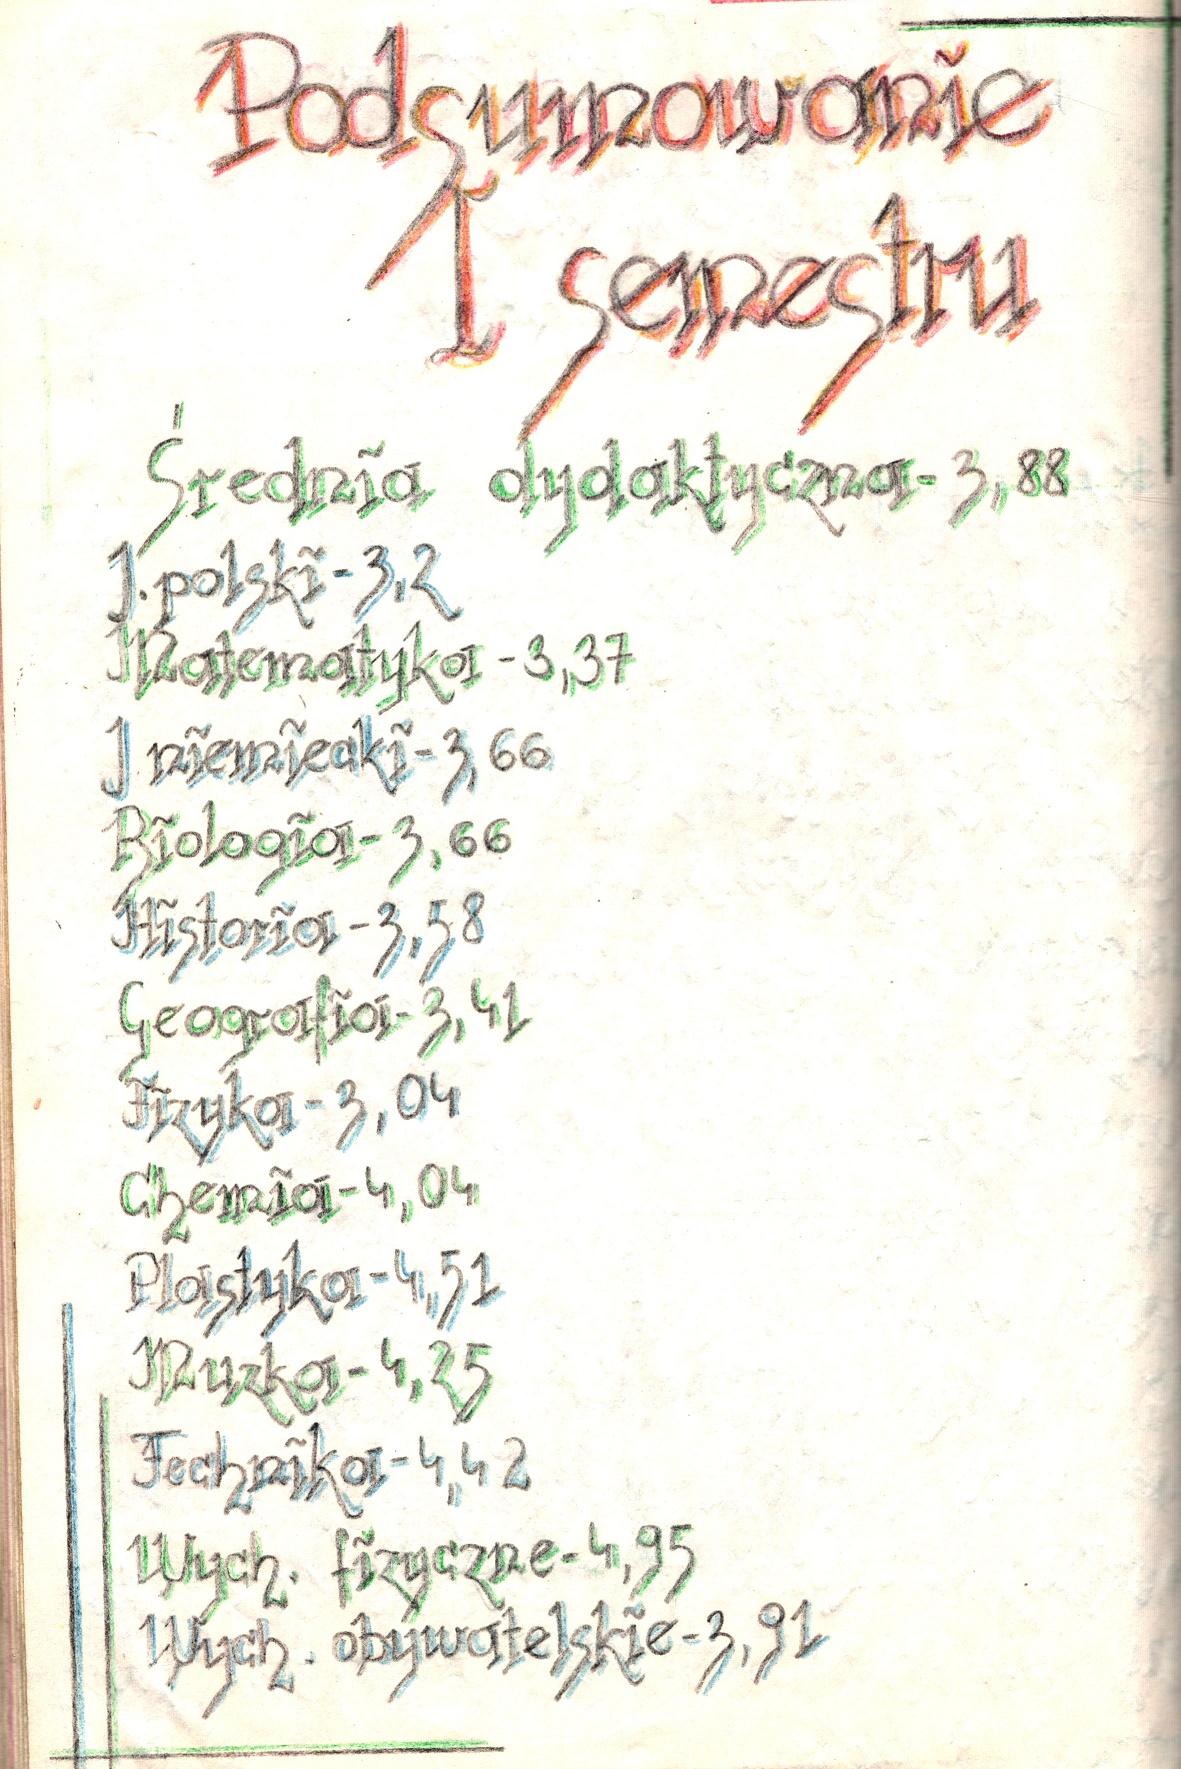 Podsumowanie
I semestru
Średnia dydaktyczna - 3,88
J. polski - 3,2
Matematyka - 3,37
J niemiecki - 3,66
Biologia - 3,66
Historia - 3,58
Geografia - 3,41
Fizyka - 3,04
Chemia - 4,04
Plastyka - 4,51
Muzka - 4,25
Technika - 4,42
Wych. fizyczne - 4,95
Wych. obywatelskie - 3,91